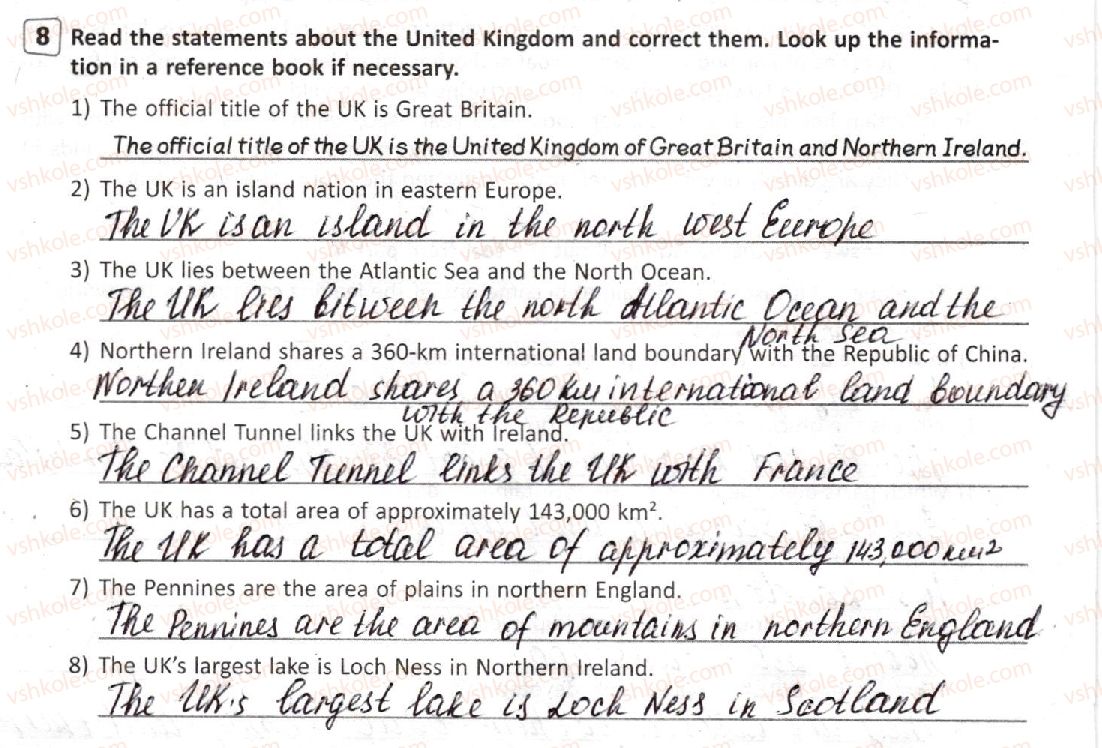 8 Read the statements about the United Kingdom and correct them. Look up the informa-
tion in a reference book if necessary.
1) The official title of the UK is Great Britain.
The official title of the UK is the United Kingdom of Great Britain and Northern Ireland.
2) The UK is an island nation in eastern Europe.
The UK is an island in the north west Eurohe
3) The UK lies between the Atlantic Sea and the North Ocean.
The UK lies bitween the north Atlantic Ocean and the
North Sea
4) Northern Ireland shares a 360-km international land boundary with the Republic of China.
Northen Ireland shares a 360 km international land boundary
with the Republic
5) The Channel Tunnel links the UK with Ireland.
The Channel Tunnel links the UK with France
6) The UK has a total area of approximately 143,000 km².
The UK has a total area of approximately 143,000 km²
7) The Pennines are the area of plains in northern England.
The Pennines are the area of mountains in northern England
8) The UK's largest lake is Loch Ness in Northern Ireland.
The UK's largest lake is Loch Ness in Scotland
vshkole.com